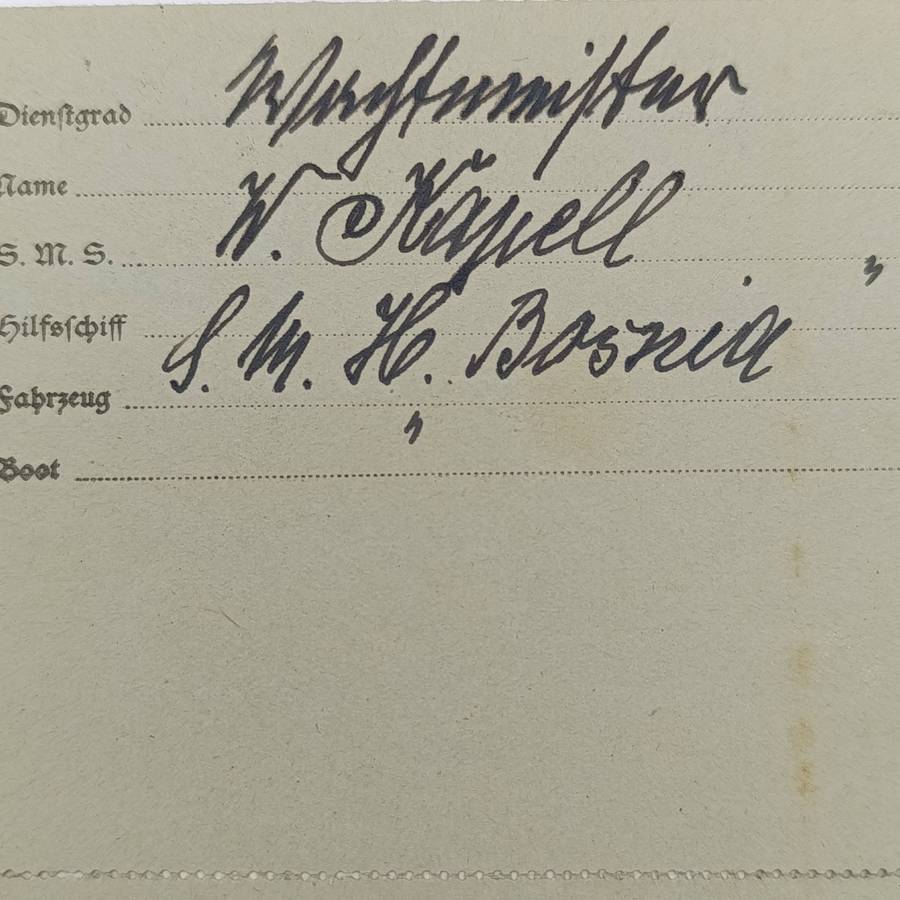 Dienstgrad Wachtmeister
Name W. Kapell
S. M. S. "
Hilfsschiff S. M. H. Bosnia
Fahrzeug "
Boot